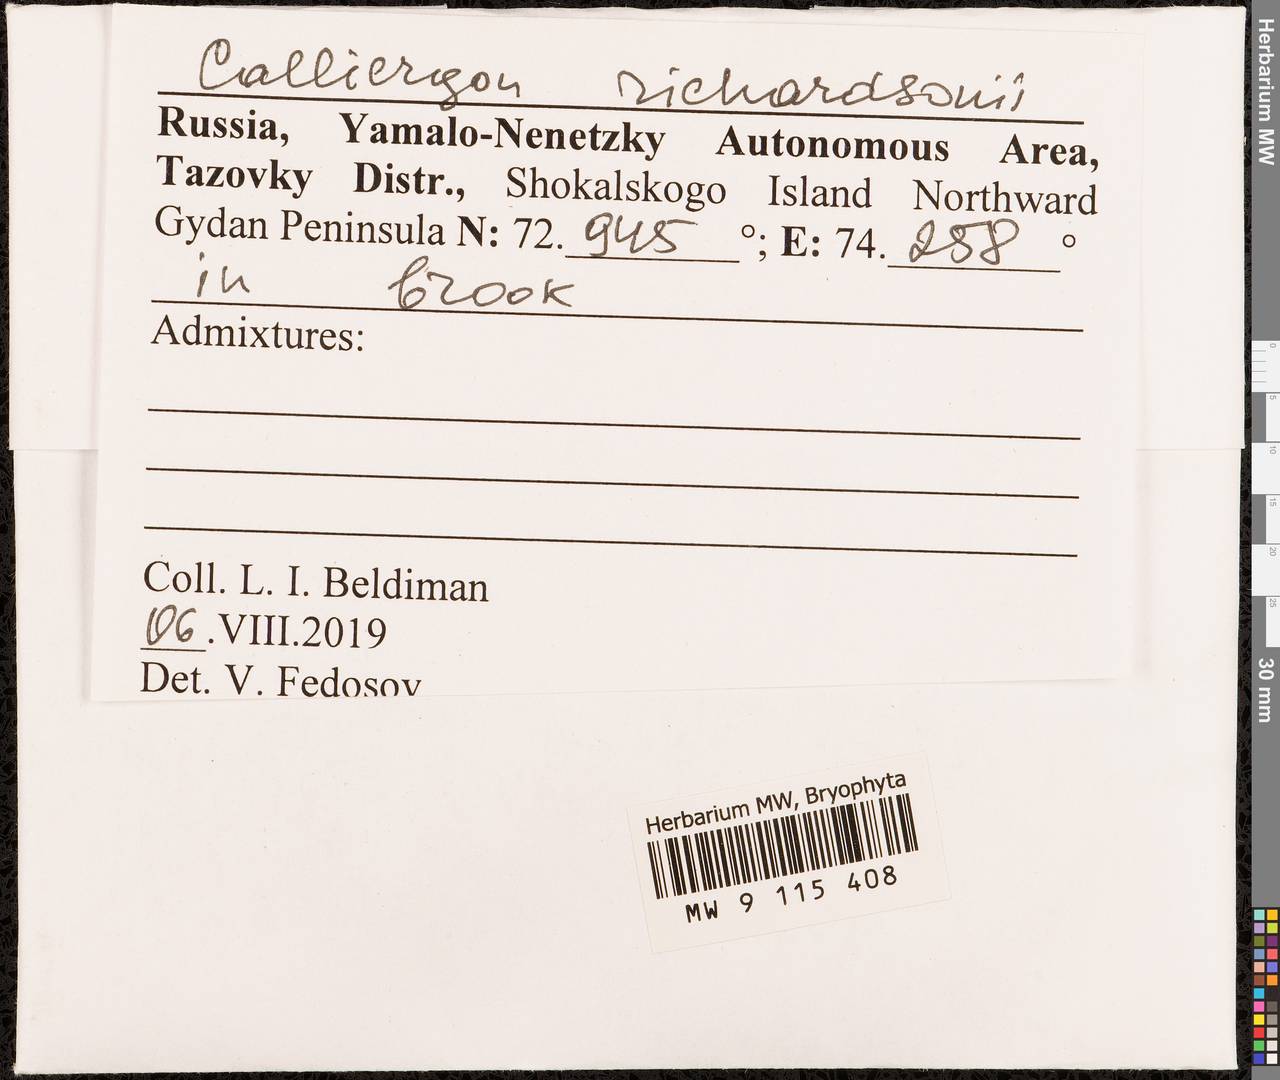 Calliergon richardsonii
Russia, Yamalo-Nenetzky Autonomous Area,
Tazovky Distr., Shokalskogo Island Northward
Gydan Peninsula N: 72. 945 °; E: 74. 258 °
in brook
Admixtures:
Coll. L. I. Beldiman
06.VIII.2019
Det. V. Fedosov
Herbarium MW, Bryophyta
MW 9 115 408
Herbarium MW
0
5
10
15
20
25
30 mm